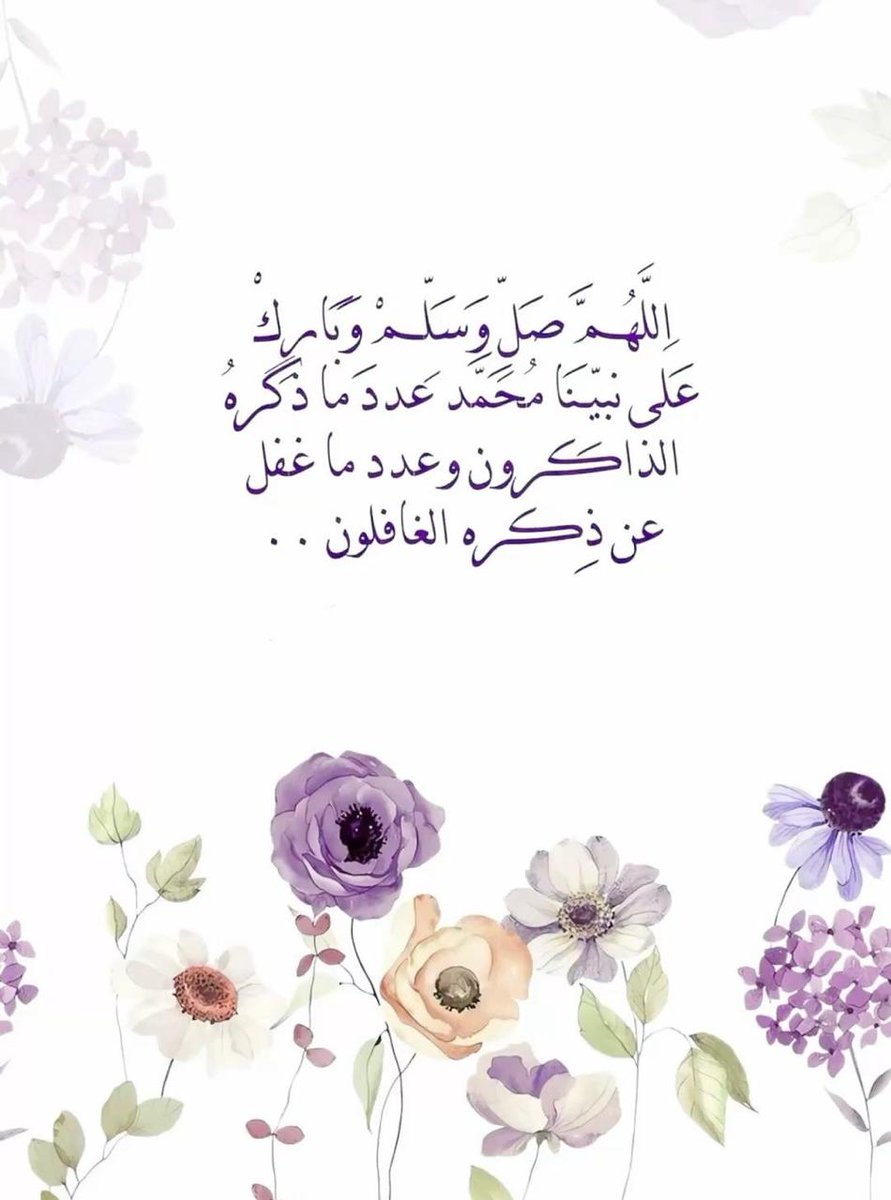 اِللَّهُمَّ صَلِّ وَسَلِّمْ وَبَارِكْ
عَلى نبيّنَا مُحَمَّد عَددَ ما ذَكَرهُ
الذاكَرون وعدد ما غفل
عن ذِكره الغافلون . .